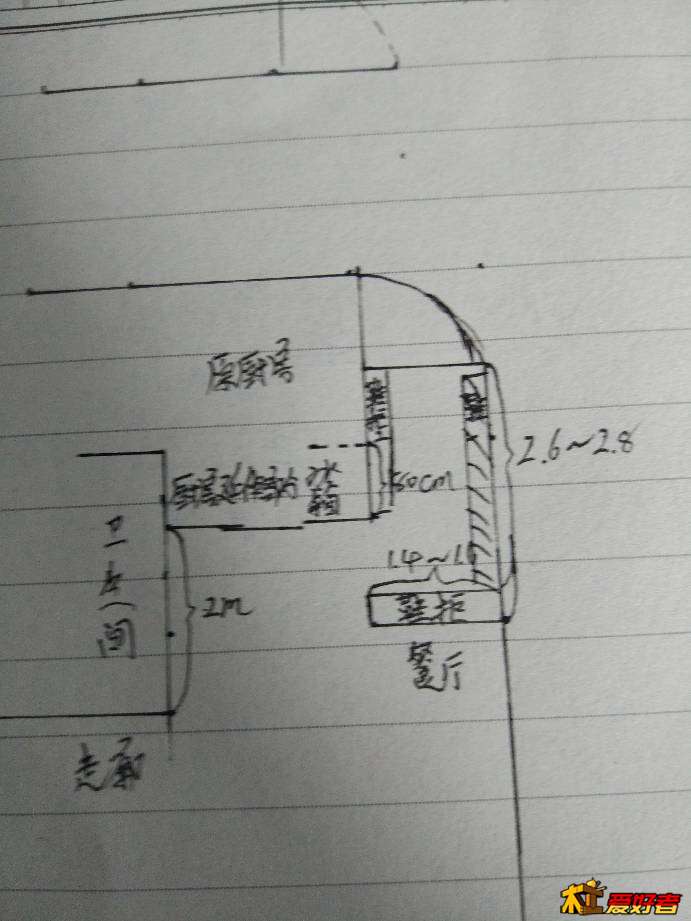 原厨房
鞋柜
2.6~2.8
厨房延伸部分
冰箱
50cm
卫生间
1.4~1.6
2m
鞋柜
餐厅
走廊
木工爱好者